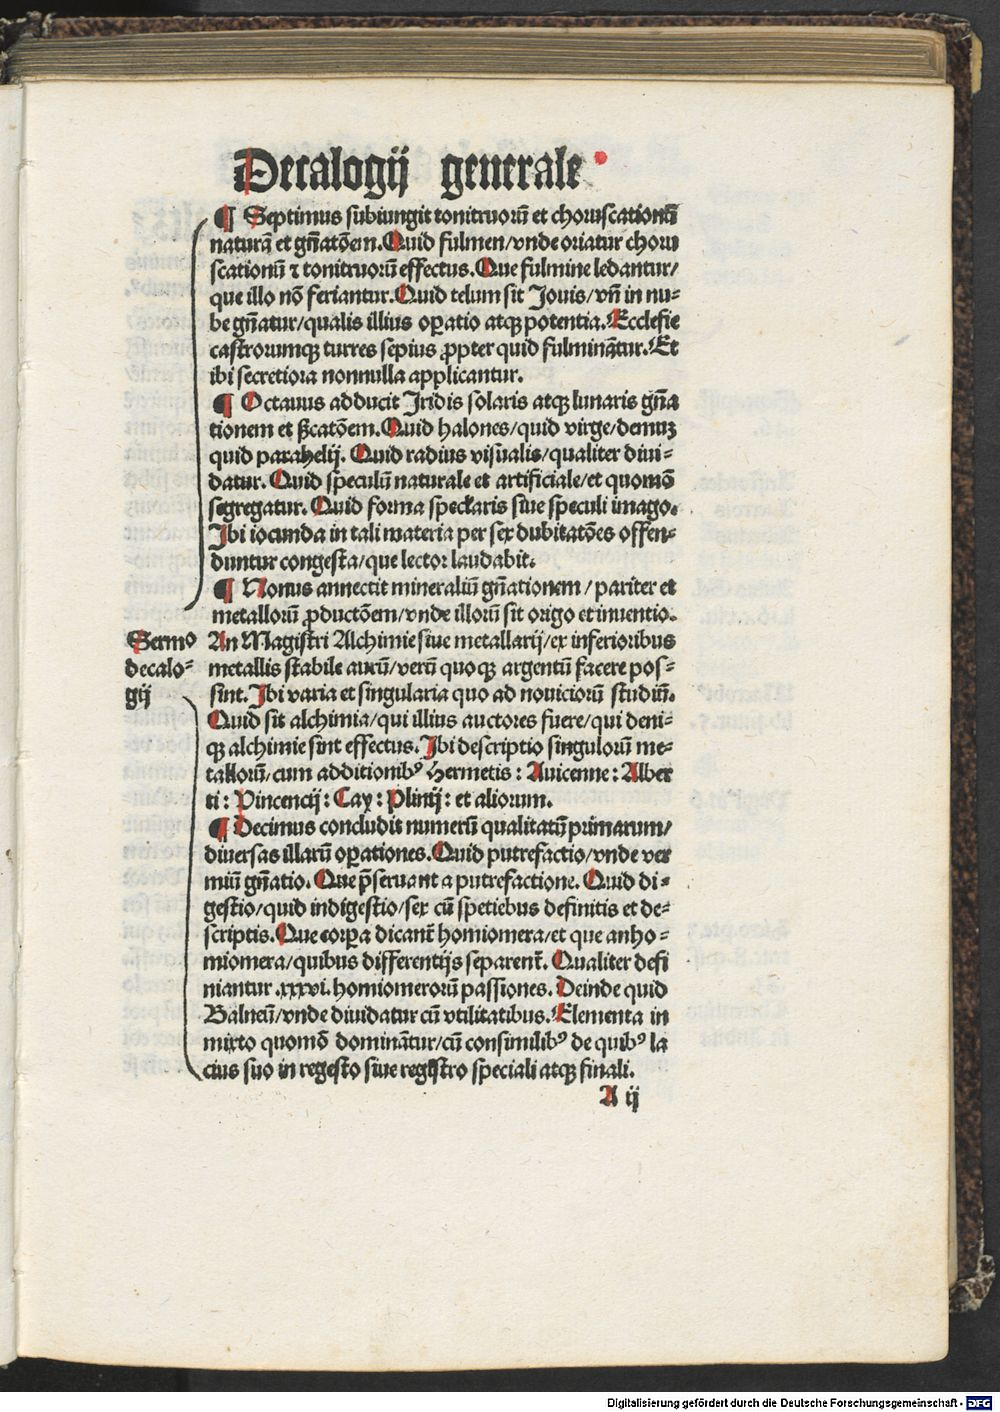 Decalogij generale
¶ Septimus subiungit tonitruorū et choruscationū
naturā et gn̄atōem. Quid fulmen/vnde oriatur choru
scationū ⁊ tonitruorū effectus. Que fulmine ledantur/
que illo nō feriantur. Quid telum sit Jouis/vn̄ in nu⸗
be gn̄atur/qualis illius oꝑatio atqꝫ potentia. Ecclesie
castrorumqꝫ turres sepius ꝓpter quid fulminātur. Et
ibi secretiora nonnulla applicantur.
¶ Octauus adducit Jridis solaris atqꝫ lunaris gn̄a
tionem et ꝑfcatōem. Quid halones/quid virge/demuꝫ
quid parahelij. Quid radius visualis/qualiter diui⸗
datur. Quid speculū naturale et artificiale/et quomō
segregatur. Quid forma specularis siue speculi imago.
Jbi iocunda in tali materia per sex dubitatōes offen⸗
duntur congesta/que lector laudabit.
¶ Nonus annectit mineraliū gn̄ationem/pariter et
metallorū ꝓductōem/vnde illorū sit origo et inuentio.
An Magistri Alchimie siue metallarij/ex inferioribus
metallis stabile aurū/verū quoqꝫ argentū facere pos⸗
sint. Jbi varia et singularia quo ad nouiciorū studiū.
Quid sit alchimia/qui illius auctores fuere/qui deni⸗
qꝫ alchimie sint effectus. Jbi descriptio singulorū me⸗
tallorū/cum additionibꝰ Hermetis: Auicenne: Alber
ti: Vincencij: Cay: Plinij: et aliorum.
¶ Decimus concludit numerū qualitatū primarum/
diuersas illarū oꝑationes. Quid putrefactio/vnde ver
miū gn̄atio. Que p̄seruant a putrefactione. Quid di⸗
gestio/quid indigestio/sex cū spetiebus definitis et de⸗
scriptis. Que corꝑa dicant̄ homiomera/et que anho⸗
miomera/quibus differentijs separent̄. Qualiter defi
niantur .xxxvi. homiomerorū passiones. Deinde quid
Balneū/vnde diuidatur cū vtilitatibus. Elementa in
mixto quomō dominātur/cū consimilibꝰ de quibꝰ la
cius suo in regesto siue registro speciali atqꝫ finali.
Sermo
decalo⸗
gij
A ij
Digitalisierung gefördert durch die Deutsche Forschungsgemeinschaft - DFG